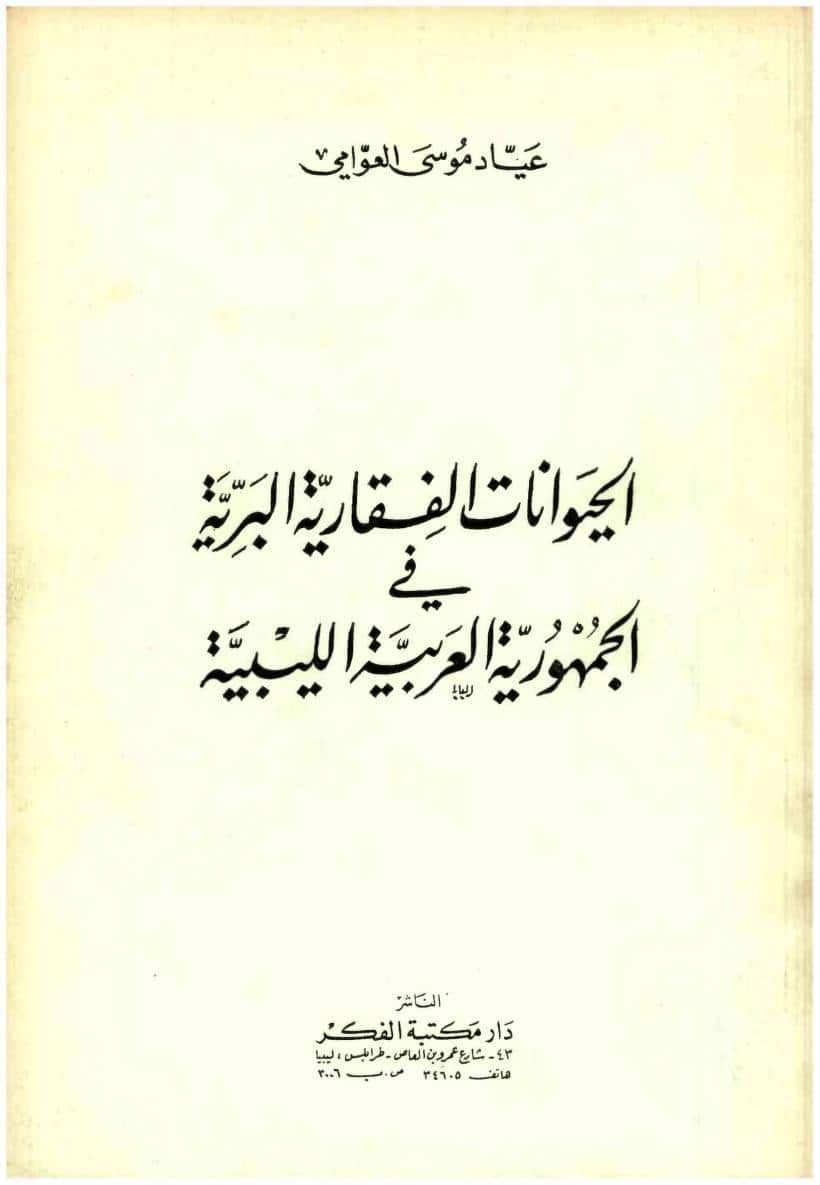 عَيَّاد مُوسَى العوَّامي
الحيَوانات الفِقاريّة البَرِّيَّة
في
الجُمْهُوريّة العَربيَّة الليْبيَّة
الناشر
دَار مَكتبة الفكر
٤٣ - شارع عمرو بن العاص - طرابلس، ليبيا
هاتف ٣٤٦٠٥ ص.ب ٣٠٠٦